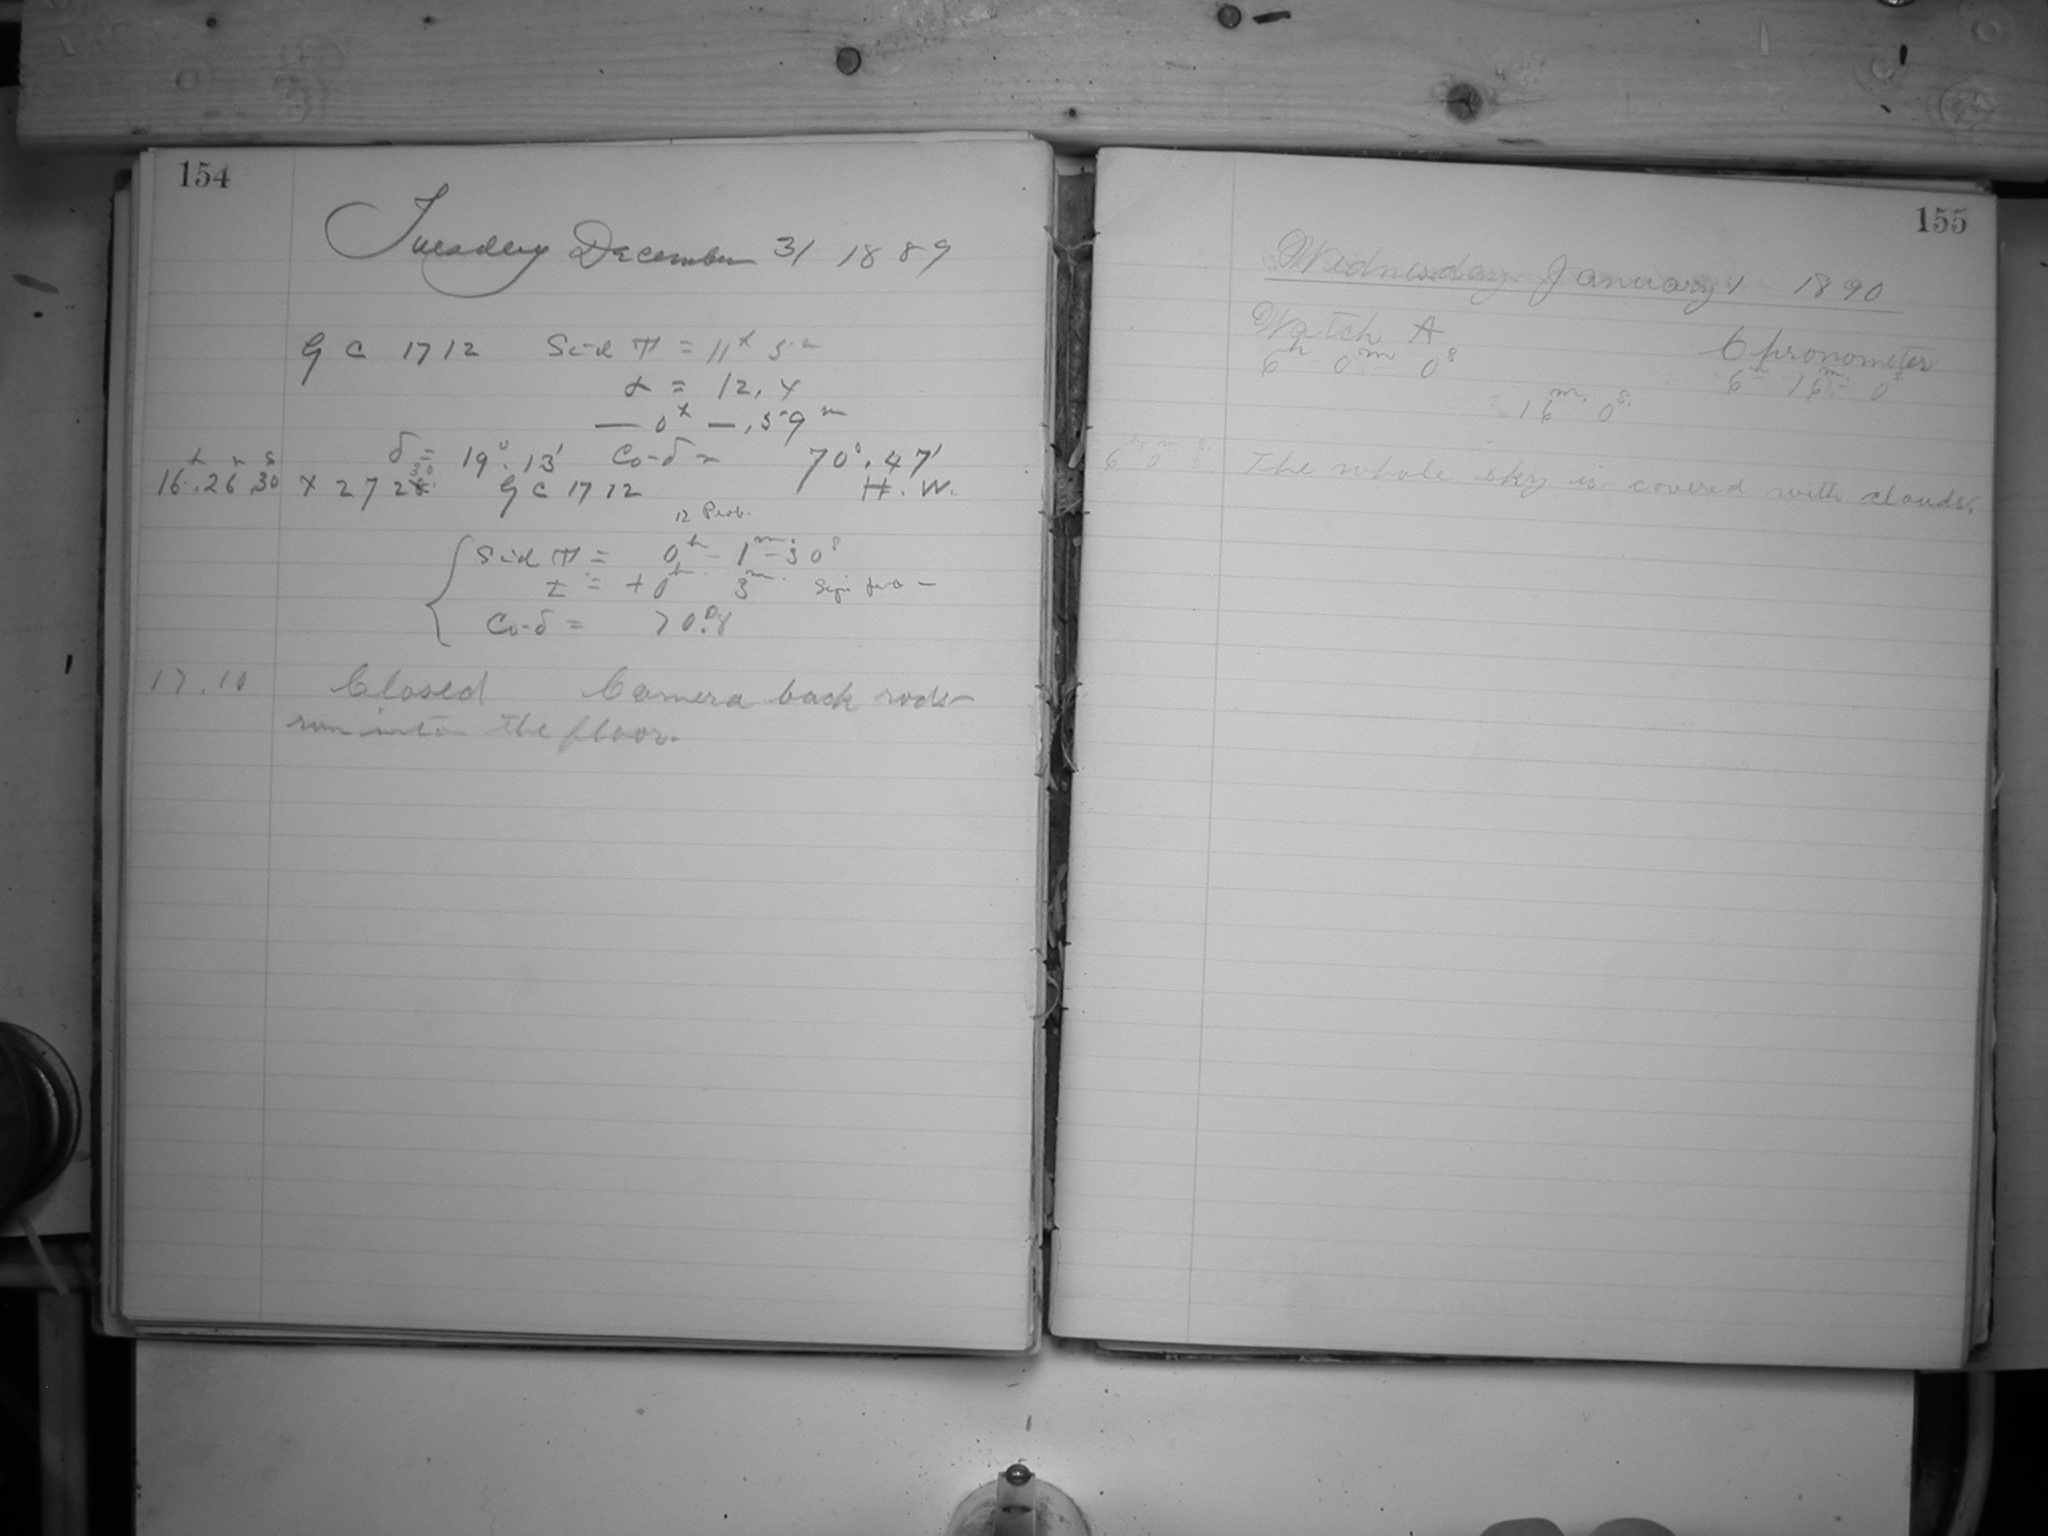 154
Tuesday December 31 1889
G C 1712 Sid T = 11h 5m
α = 12, 4
— 0h —, 59m
δ = 19°. 13' Co-δ = 70°. 47'
16h. 26m 30s X 272 G C 1712 H. W.
12 Prob.
Sid T = 0h - 1m - 30s
t = + 0h. 3m.
Co-δ = 70°.8
17. 10 Closed Camera back rods
run into the floor.
155
Wednesday January 1 1890
Watch A Chronometer
6h - 0m - 0s 6h - 16m - 0s
16m. 0s.
6h. 0m 0s. The whole sky is covered with clouds.